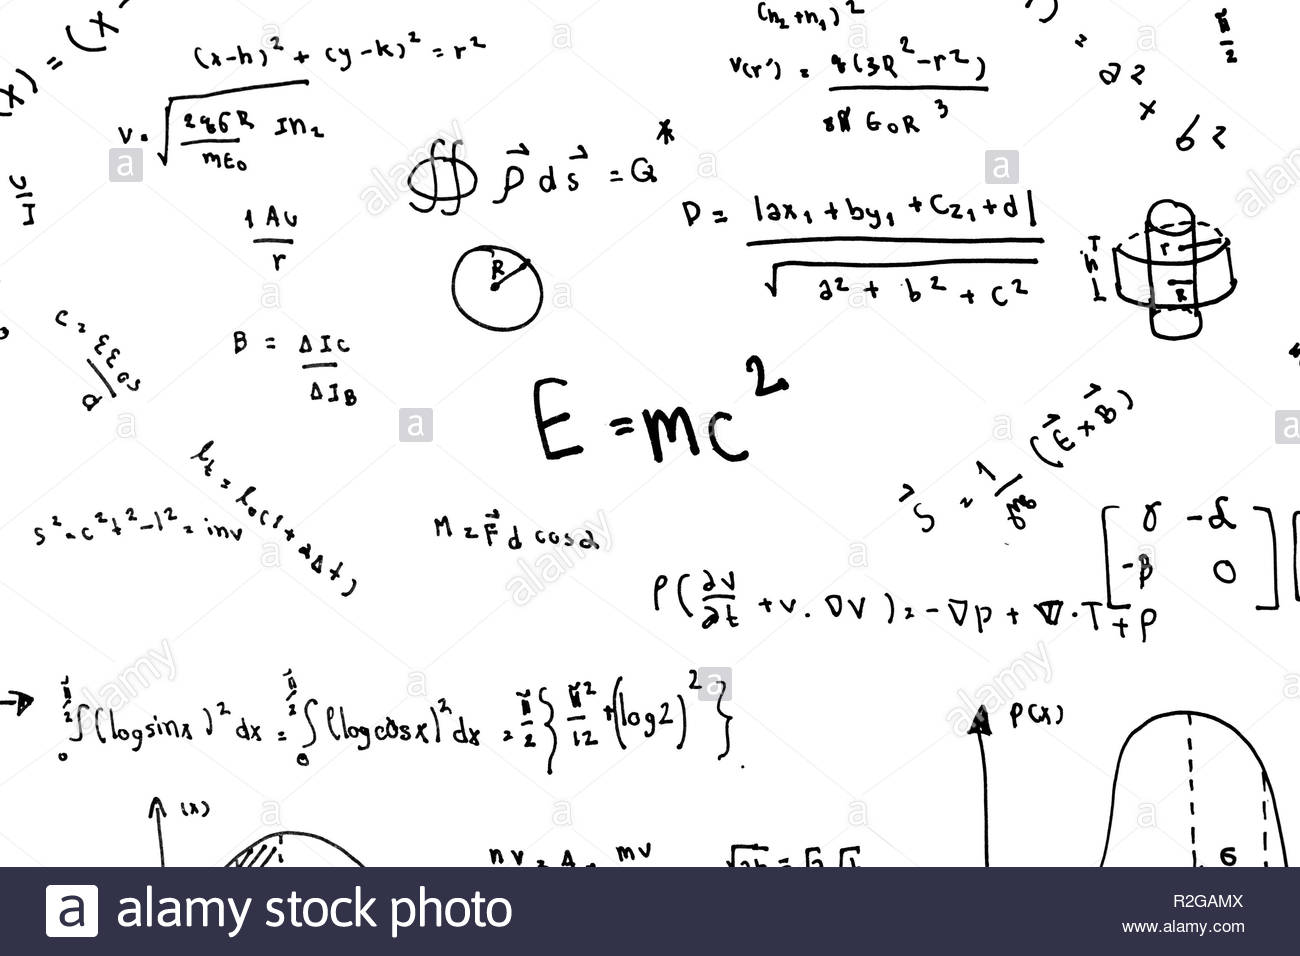 (x-h)² + (y-k)² = r²
(n₂+n₁)²
π/2
V(r') = q(3R²-r²) / 8π ϵ₀R³
IN₂
mE₀
= a2 × b2
∯ ρ⃗ ds⃗ = Q*
D = |ax₁ + by₁ + cz₁ + d| / √a² + b² + c²
1 AU / r
R
T h
r
R
B = ΔIc / ΔIB
E = mc²
S⃗ = 1/μ₀ (E⃗ × B⃗)
lt = l₀(1 + αΔt)
s² = c²t² - l² = inv
M = F⃗ d cosα
[ γ -α
-β 0 ]
ρ(∂v/∂t + v · ∇v) = -∇p + ∇ · T + ρ
π/2 ∫ 0 (log sinx)² dx = π/2 ∫ 0 (log cosx)² dx = π/2 { π²/12 + (log2)² }.
P(x)
(x)
6
a alamy stock photo
R2GAMX
www.alamy.com